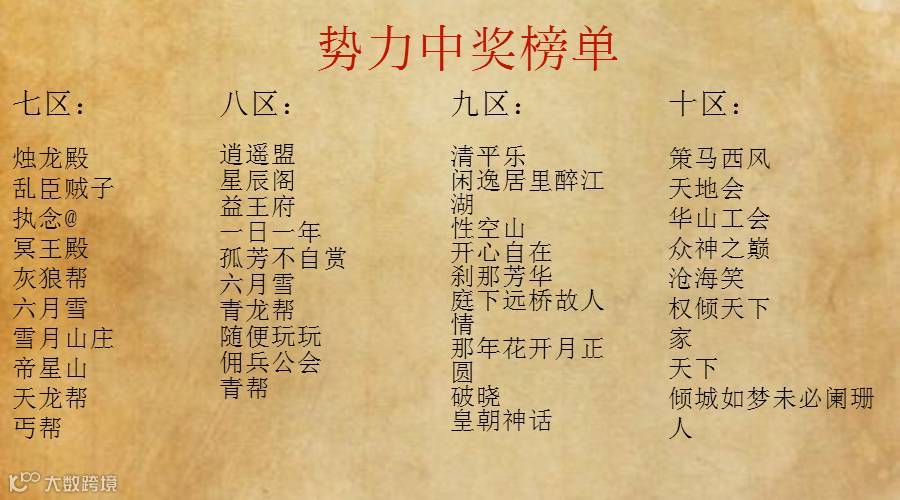 势力中奖榜单
七区：
烛龙殿
乱臣贼子
执念@
冥王殿
灰狼帮
六月雪
雪月山庄
帝星山
天龙帮
丐帮
八区：
逍遥盟
星辰阁
益王府
一日一年
孤芳不自赏
六月雪
青龙帮
随便玩玩
佣兵公会
青帮
九区：
清平乐
闲逸居里醉江
湖
性空山
开心自在
刹那芳华
庭下远桥故人
情
那年花开月正
圆
破晓
皇朝神话
十区：
策马西风
天地会
华山工会
众神之巅
沧海笑
权倾天下
家
天下
倾城如梦未必阑珊
人
大数跨境